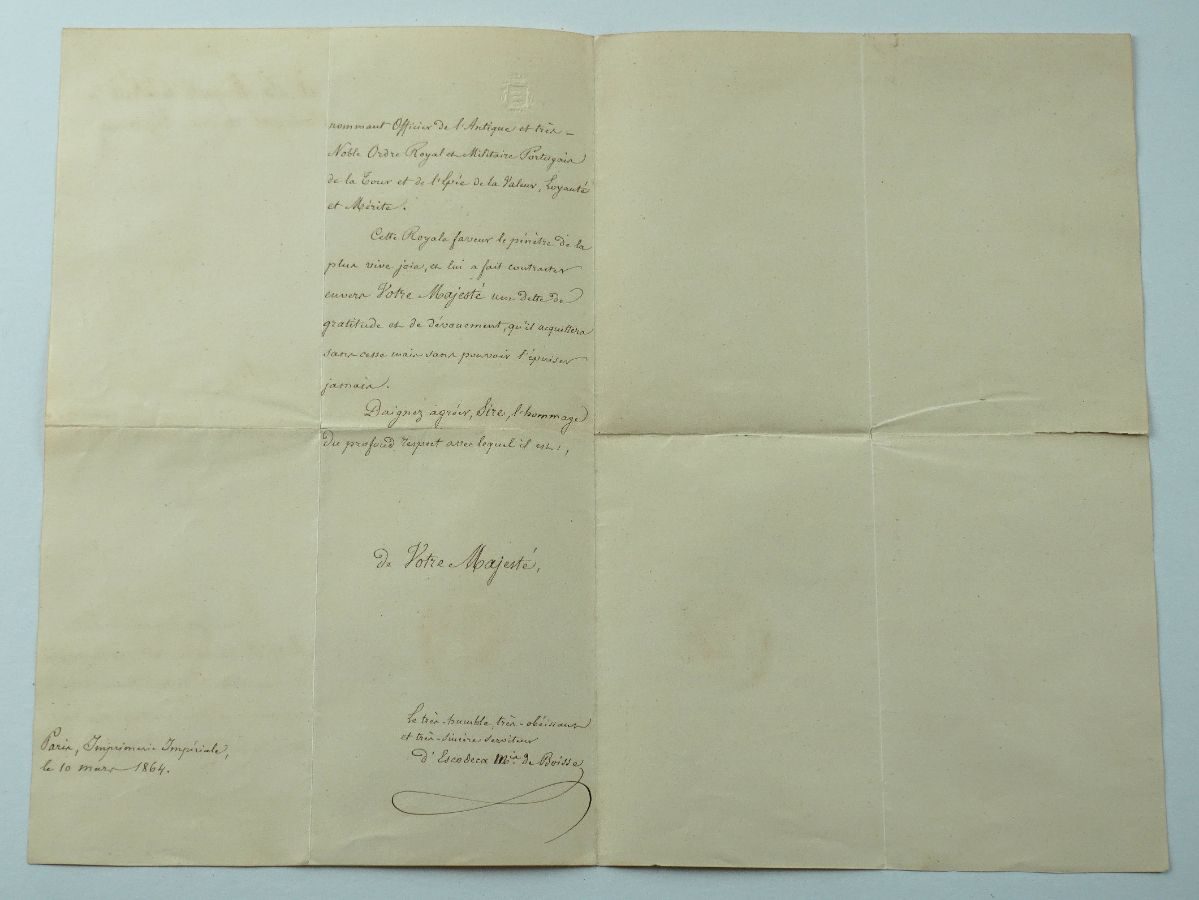 nommant Officier de l'Antique et très-
Noble Ordre Royal et Militaire Portugais
de la Tour et de l'Epée de la Valeur, Loyauté
et Mérite.
Cette Royale faveur le pénètre de la
plus vive joie, et lui a fait contracter
envers Votre Majesté une dette de
gratitude et de dévouement, qu'il acquittera
sans cesse mais sans pouvoir l'épuiser
jamais.
Daignez agréer, Sire, l'hommage
du profond respect avec lequel il est,
de Votre Majesté,
Le très-humble, très-obéissant
et très-sincère serviteur
d'Escodeca Mis de Boisse
Paris, Imprimerie Impériale,
le 10 mars 1864.